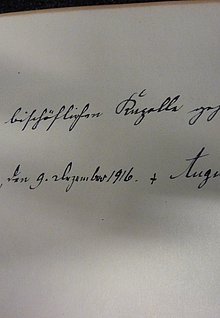 bischöflichen Kapelle
, den 9. Dezember 1916. + Augu